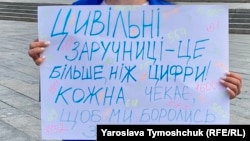 ЦИВІЛЬНІ
ЗАРУЧНИЦІ – ЦЕ
БІЛЬШЕ НІЖ ЦИФРИ!
КОЖНА ЧЕКАЄ,
ЩОБ МИ БОРОЛИСЬ
Yaroslava Tymoshchuk RFE/RL)